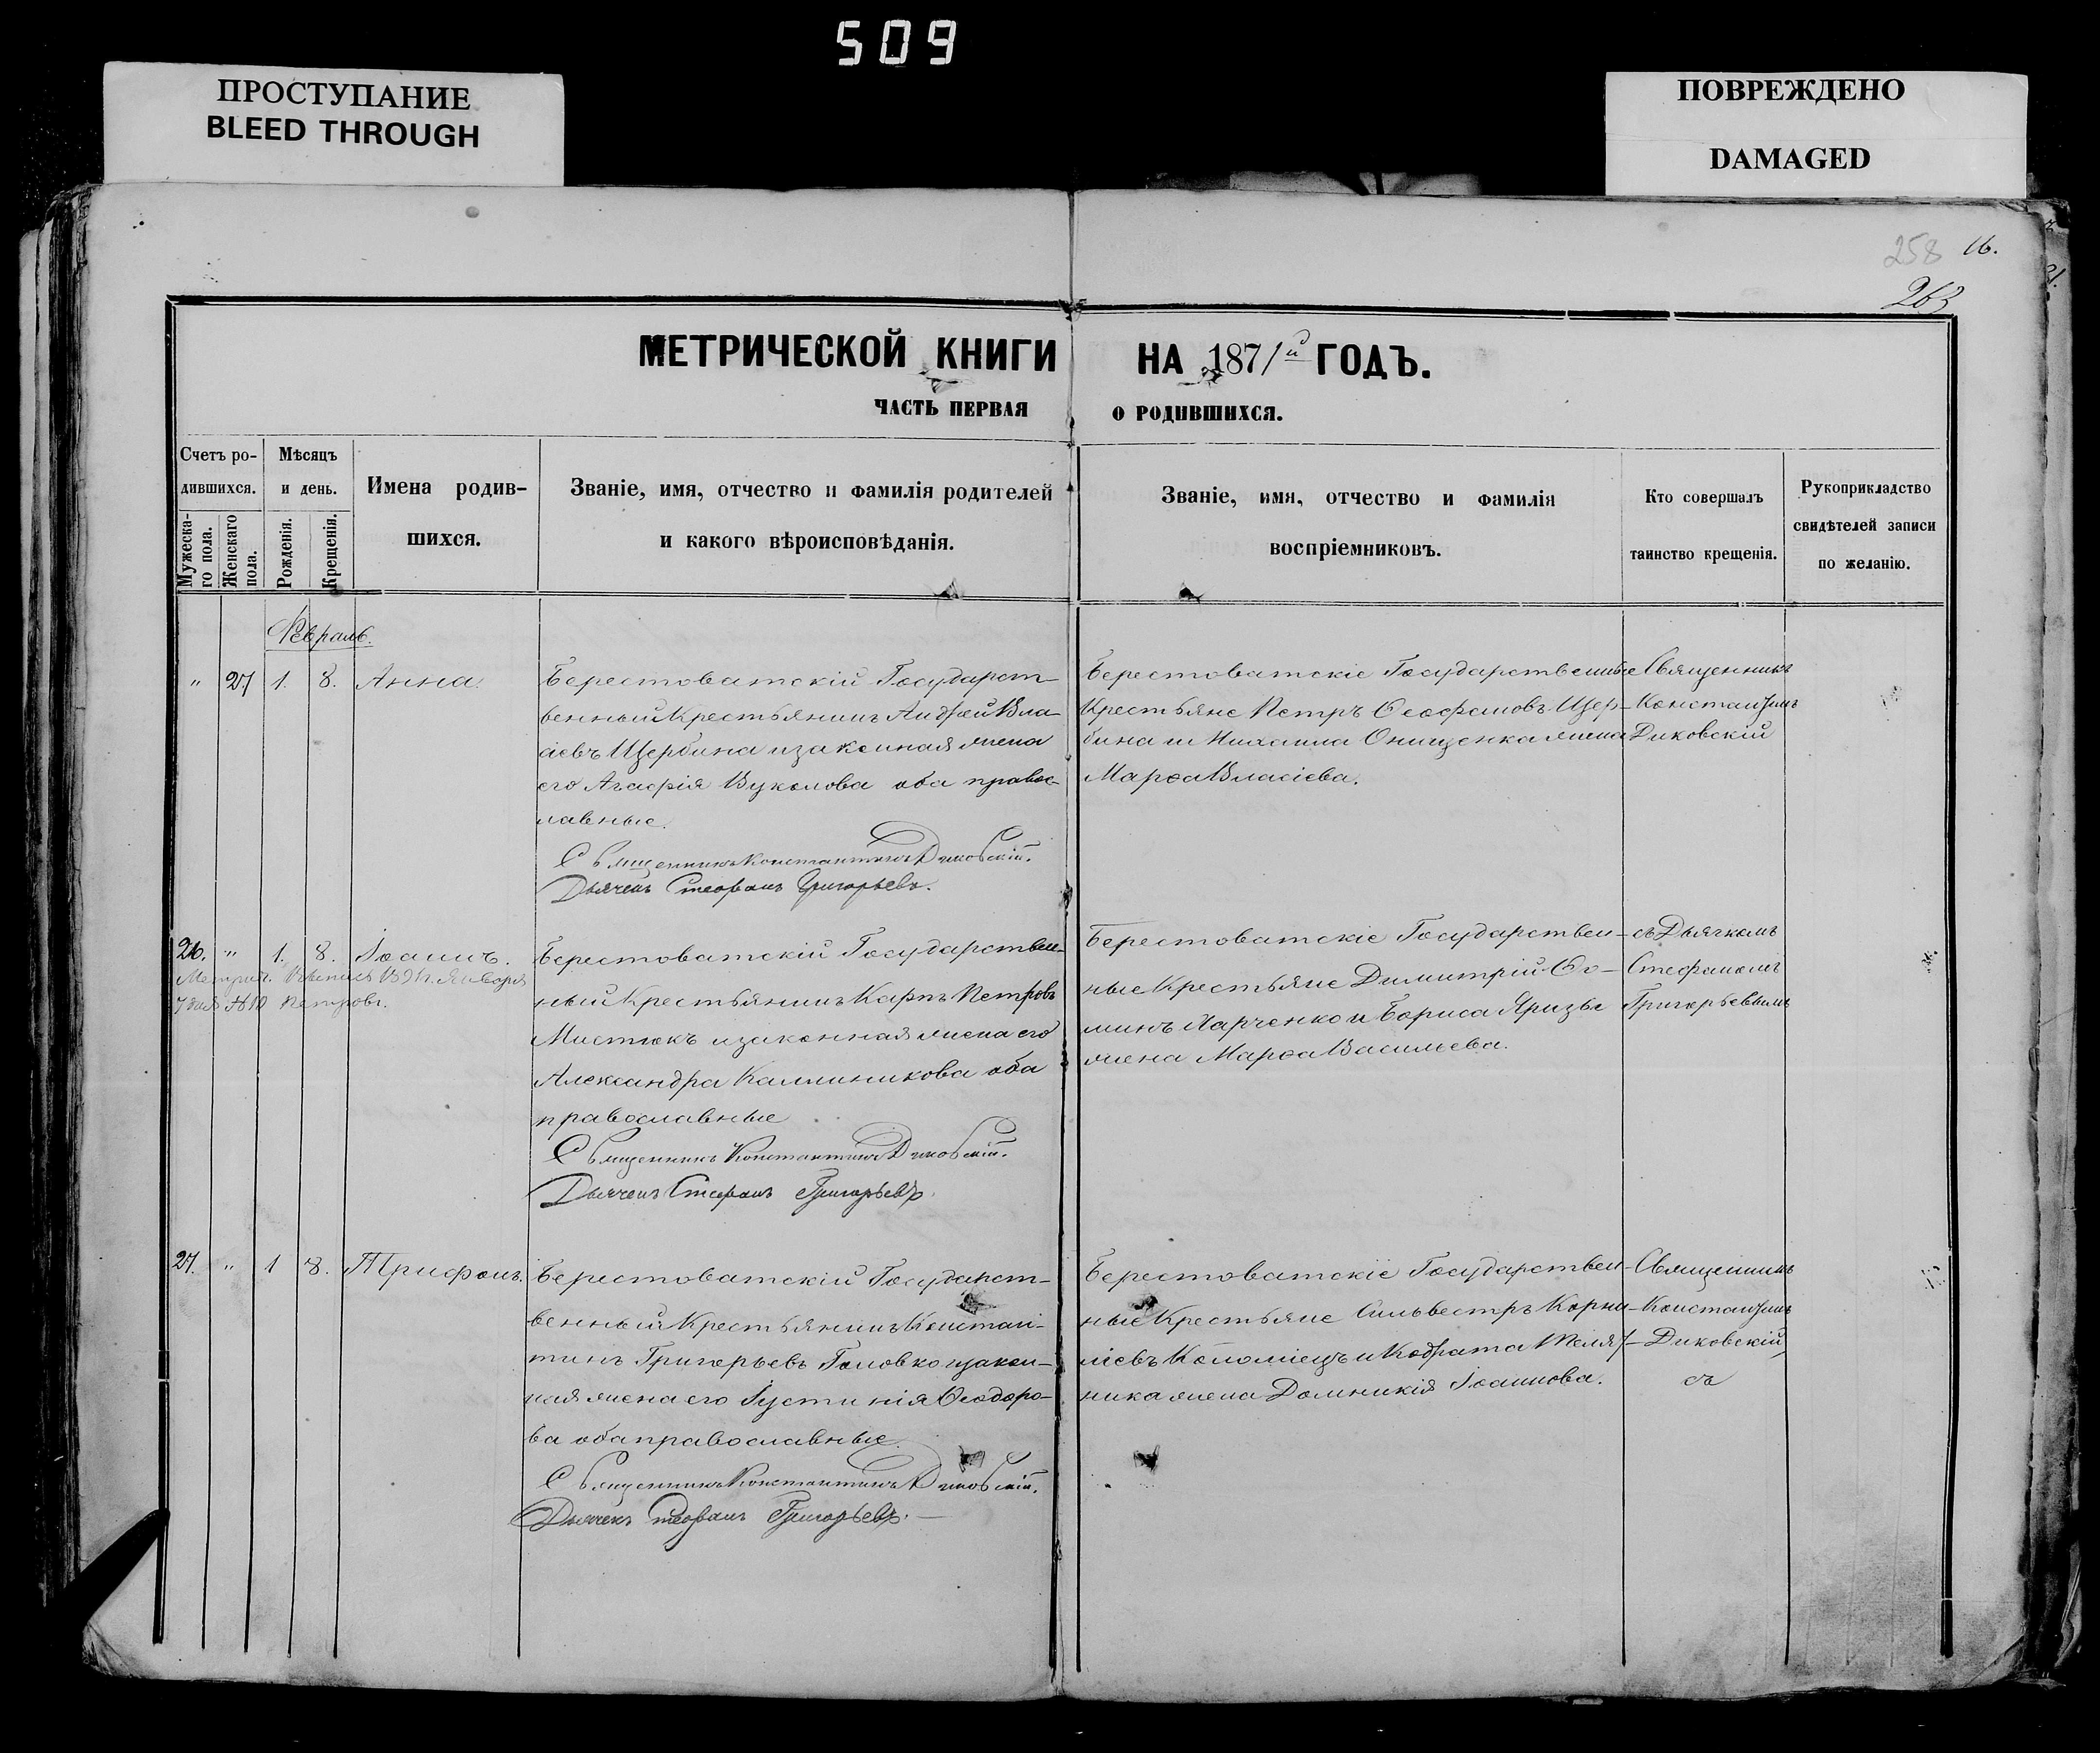 509
ПРОСТУПАНИЕ
BLEED THROUGH
ПОВРЕЖДЕНО
DAMAGED
258 16.
263
МЕТРИЧЕСКОЙ КНИГИ НА 1871й ГОДЪ.
ЧАСТЬ ПЕРВАЯ О РОДИВШИХСЯ.
Счетъ ро-
дившихся.
Мужеска-
го пола.
Женскаго
пола.
Мѣсяцъ
и день.
Рожденія.
Крещенія.
Имена родив-
шихся.
Званіе, имя, отчество и фамилія родителей
и какого вѣроисповѣданія.
Званіе, имя, отчество и фамилія
воспріемниковъ.
Кто совершалъ
таинство крещенія.
Рукоприкладство
свидѣтелей записи
по желанію.
Февраль.
" 27 1. 8. Анна.
Берестоватскій Государст-
венный Крестьянинъ Андрей Вла-
сіевъ Щербина и законная жена
его Агафія Вуколова оба правос-
лавные.
Священникъ Константинъ Диковскій.
Дьячекъ Стефанъ Григорьевъ.
Берестоватскіе Государственные
Крестьяне Петръ Ѳеофановъ Щер-
бина и Михаила Онищенка жена
Марѳа Власіева.
Священникъ
Константинъ
Диковскій
26. " 1. 8. Іоаннъ.
Берестоватскій Государствен-
ный Крестьянинъ Карпъ Петровъ
Мистюкъ и законная жена его
Александра Каллиникова оба
православные
Священникъ Константинъ Диковскій.
Дьячекъ Стефанъ Григорьевъ.
Берестоватскіе Государствен-
ные Крестьяне Димитрій Ѳо-
минъ Харченко и Бориса Яризы
жена Марѳа Васильева.
съ Дьячкомъ
Стефаномъ
Григорьевымъ
27. " 1 8. Трифонъ.
Берестоватскій Государст-
венный Крестьянинъ Констан-
тинъ Григорьевъ Головко и закон-
ная жена его Іустинія Ѳеодоро-
ва оба православные.
Священникъ Константинъ Диковскій.
Дьячекъ Стефанъ Григорьевъ.
Берестоватскіе Государствен-
ные Крестьяне Сильвестръ Корни-
ліевъ Коломіецъ и Кодрата Телят-
ника жена Домникія Іоаннова.
Священникъ
Константинъ
Диковскій,
съ